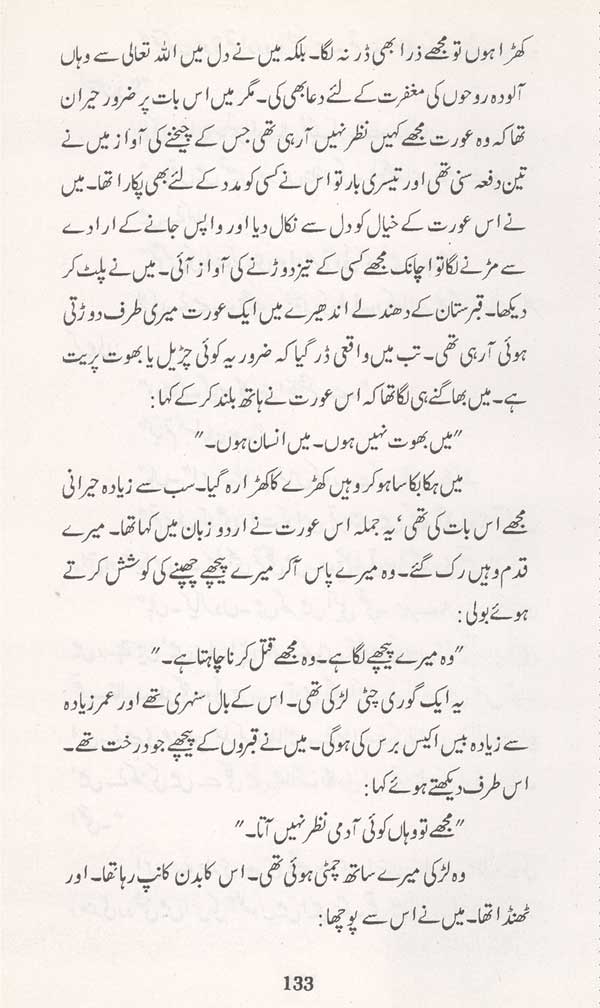 کھڑا ہوں تو مجھے ذرا بھی ڈر نہ لگا۔ بلکہ میں نے دل میں اللہ تعالی سے وہاں
آلودہ روحوں کی مغفرت کے لئے دعا بھی کی۔ مگر میں اس بات پر ضرور حیران
تھا کہ وہ عورت مجھے کہیں نظر نہیں آرہی تھی جس کے چیخنے کی آواز میں نے
تین دفعہ سنی تھی اور تیسری بار تو اس نے کسی کو مدد کے لئے بھی پکارا تھا۔ میں
نے اس عورت کے خیال کو دل سے نکال دیا اور واپس جانے کے ارادے
سے مڑنے لگا تو اچانک مجھے کسی کے تیز دوڑنے کی آواز آئی۔ میں نے پلٹ کر
دیکھا۔ قبرستان کے دھندلے اندھیرے میں ایک عورت میری طرف دوڑتی
ہوئی آرہی تھی۔ تب میں واقعی ڈر گیا کہ ضرور یہ کوئی چڑیل یا بھوت پریت
ہے۔ میں بھاگنے ہی لگا تھا کہ اس عورت نے ہاتھ بلند کر کے کہا:
"میں بھوت نہیں ہوں۔ میں انسان ہوں۔"
میں ہکا بکا سا ہو کر وہیں کھڑے کا کھڑا رہ گیا۔ سب سے زیادہ حیرانی
مجھے اس بات کی تھی' یہ جملہ اس عورت نے اردو زبان میں کہا تھا۔ میرے
قدم وہیں رک گئے۔ وہ میرے پاس آکر میرے پیچھے چھپنے کی کوشش کرتے
ہوئے بولی:
"وہ میرے پیچھے لگا ہے۔ وہ مجھے قتل کرنا چاہتا ہے۔"
یہ ایک گوری چٹی لڑکی تھی۔ اس کے بال سنہری تھے اور عمر زیادہ
سے زیادہ بیس اکیس برس کی ہوگی۔ میں نے قبروں کے پیچھے جو درخت تھے۔
اس طرف دیکھتے ہوئے کہا:
"مجھے تو وہاں کوئی آدمی نظر نہیں آتا۔"
وہ لڑکی میرے ساتھ چمٹی ہوئی تھی۔ اس کا بدن کانپ رہا تھا۔ اور
ٹھنڈا تھا۔ میں نے اس سے پوچھا:
133